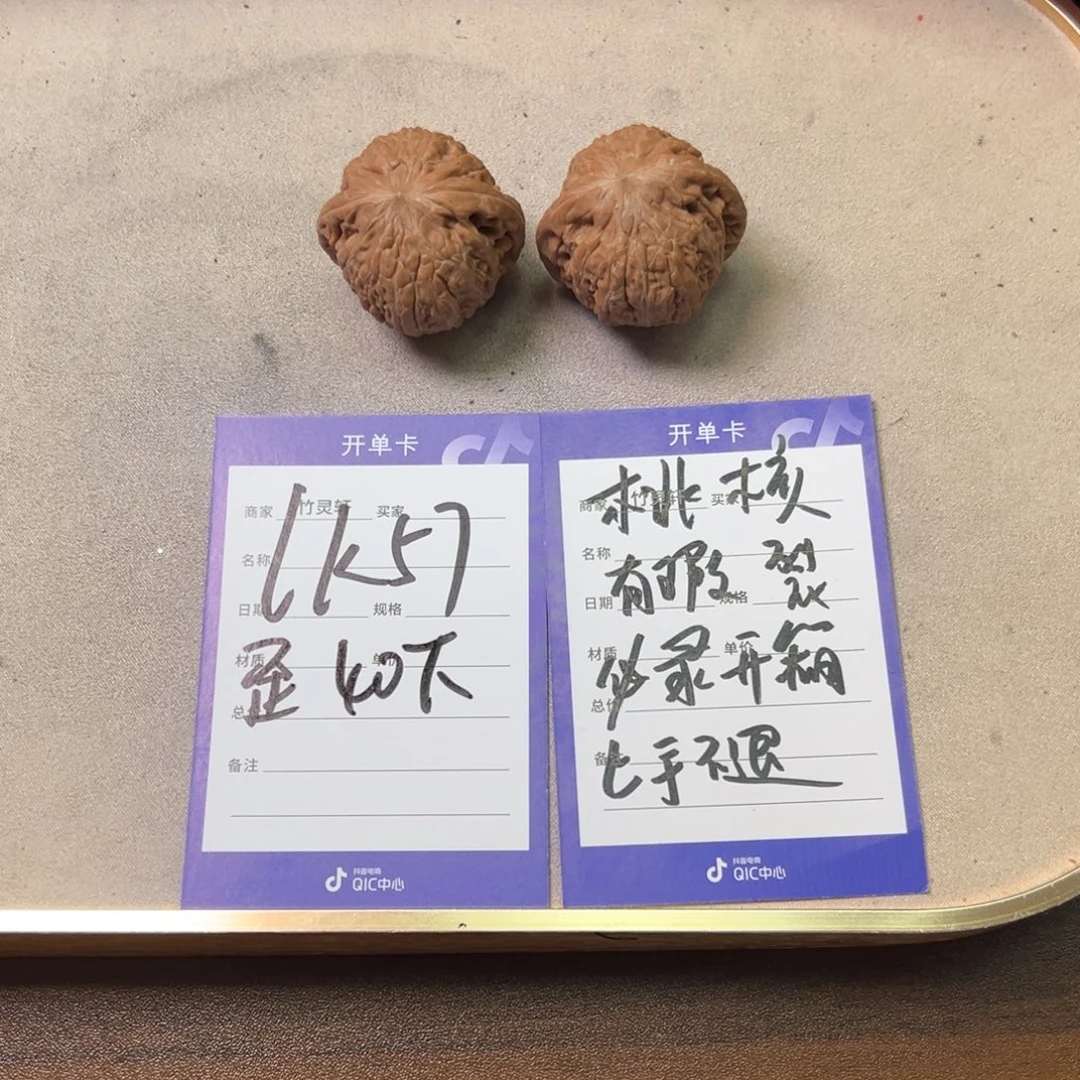 开单卡
商家 竹灵轩 买家
名称
日期 规格
材质 单价
总价
备注
1K57
歪 40下
抖音电商
QIC中心
开单卡
商家 竹灵轩 买家
名称
日期 规格
材质 单价
总价
备注
桃核
有暇 裂
必录开箱
上手不退
抖音电商
QIC中心